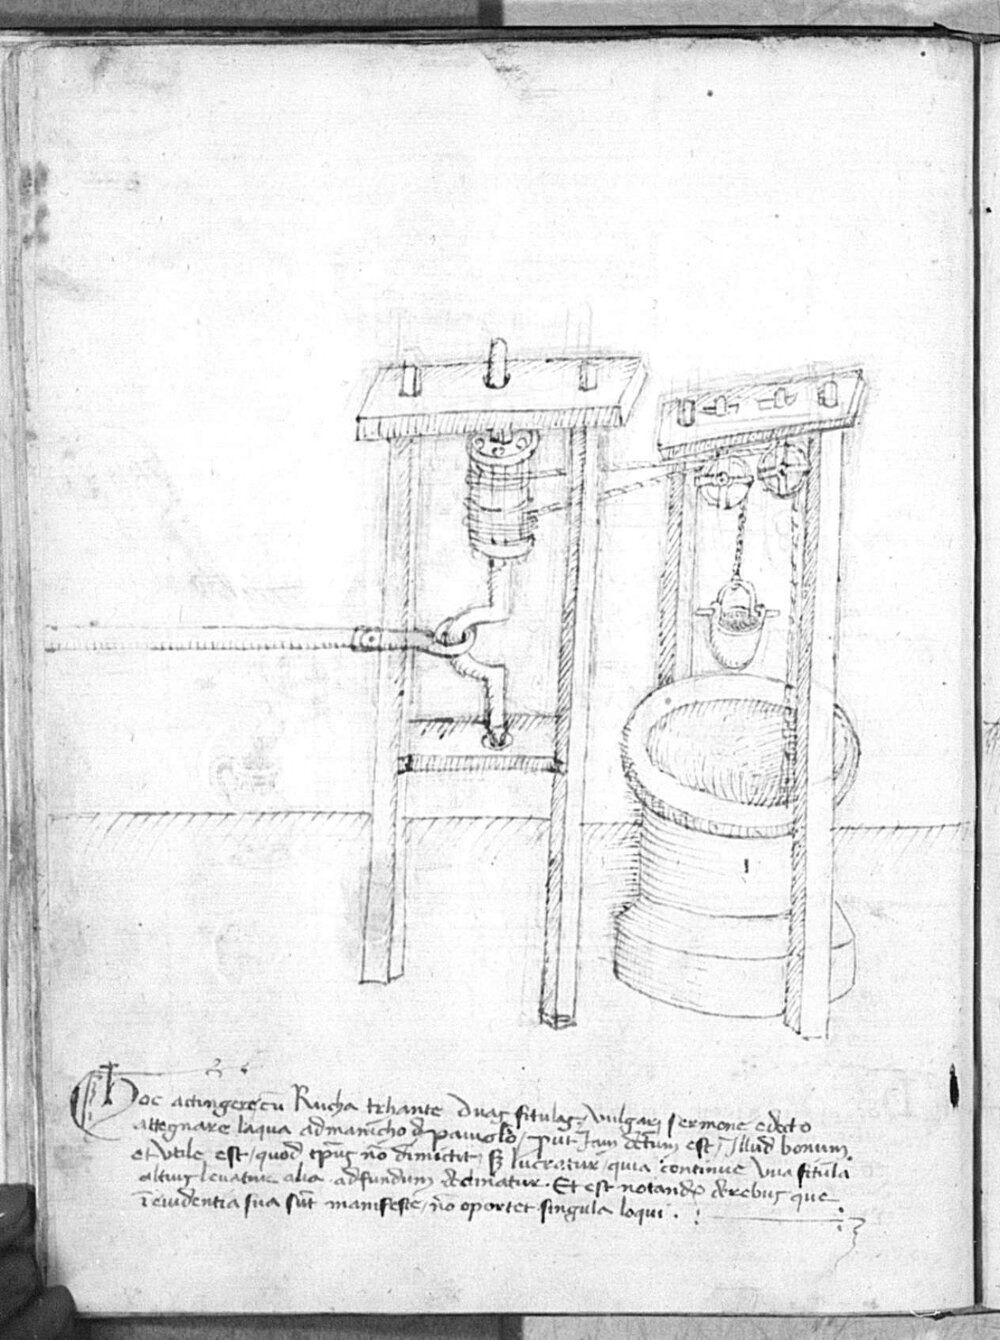 Hoc actingere cū Rucha trhante duas situlas, Vulgari sermone edocto
attegnare laqua admanicho d pauiglō, put Iam dctum est, Illud bonum
et Vtile est, quod tp̄us nō dimictit, sȝ lucratur, quia continue Vna situla
altius leuatur alia adfundum declinatur. Et est notandū derebus que
ī euidentia sua sūt manifeste, nō oportet singula loqui.